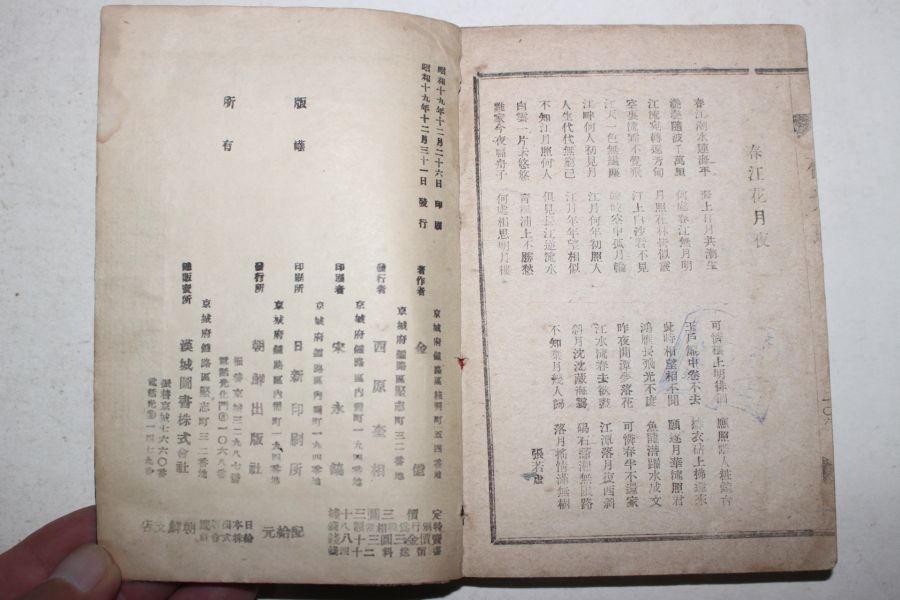 春江花月夜
春江潮水連海平 海上明月共潮生
灩灩隨波千萬里 何處春江無月明
江流宛轉遶芳甸 月照花林皆似霰
空裏流霜不覺飛 汀上白沙看不見
江天一色無纖塵 皎皎空中孤月輪
江畔何人初見月 江月何年初照人
人生代代無窮已 江月年年望相似
不知江月照何人 但見長江送流水
白雲一片去悠悠 青楓浦上不勝愁
誰家今夜扁舟子 何處相思明月樓
可憐樓上月徘徊 應照離人粧鏡台
玉戶簾中卷不去 擣衣砧上拂還來
此時相望不相聞 願逐月華流照君
鴻雁長飛光不度 魚龍潛躍水成文
昨夜閒潭夢落花 可憐春半不還家
江水流春去欲盡 江潭落月復西斜
斜月沈沈藏海霧 碣石瀟湘無限路
不知乘月幾人歸 落月搖情滿無樹
張若虛
昭和十九年十二月二十六日 印刷
昭和十九年十二月三十一日 發行
版權
所有
著作者 金億
京城府鍾路區堅志町三二番地
發行者 西原奎相
京城府鍾路區內需町一九四番地
印刷者 宋永鎬
京城府鍾路區內需町一九四番地
印刷所 日新印刷所
發行所 朝鮮出版社
振替京城三二九八七番
電話光化門一〇六八番
京城府鍾路區堅志町三二番地
總販賣所 漢城圖書株式會社
振替京城七六六〇番
配給元